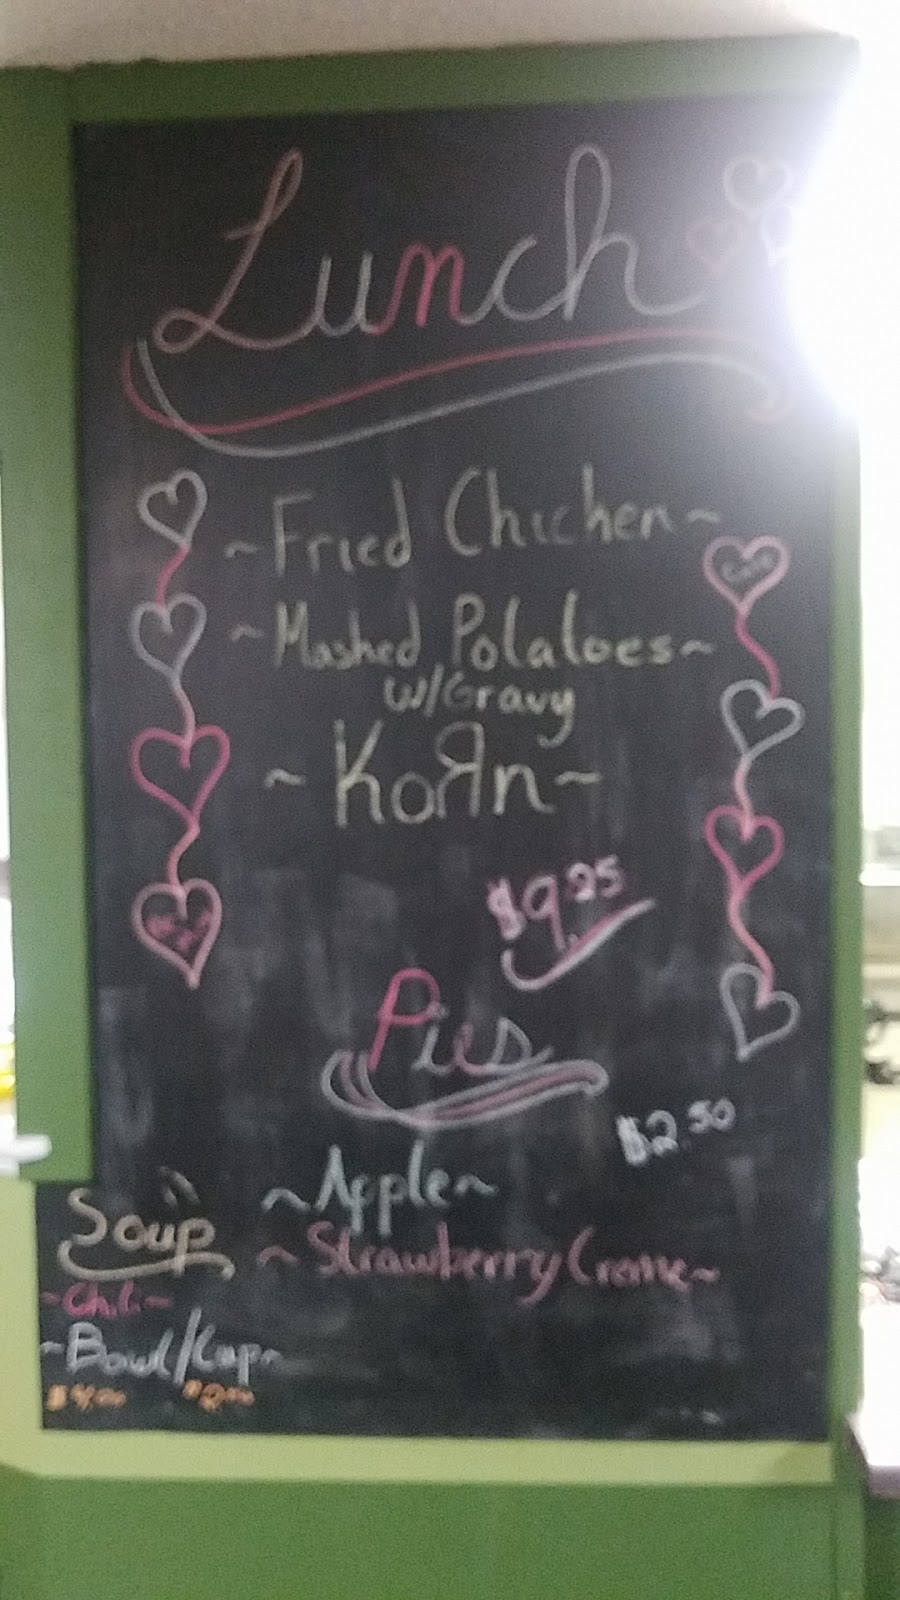 Lunch
~Fried Chicken~
~Mashed Potatoes~
w/Gravy
~KoЯn~
$9.25
Pies
$2.50
~Apple~
~Strawberry Creme~
Soup
~Chili~
~Bowl/Cup~
$4.00 $2.00